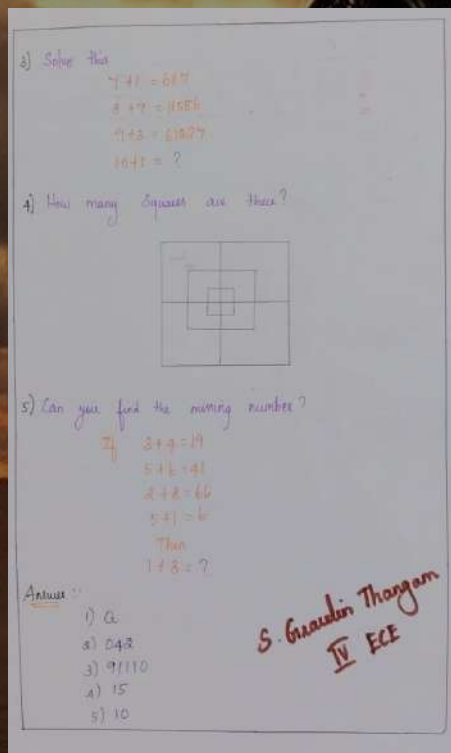 3) Solve this
7+1 = 687
= ?
4) How many Squares are there?
5) Can you find the missing number?
If 3+4=19
5+6=41
2+8=66
5+1=6
Then
1+3=?
Answer:-
1) a
2) 042
3) 91110
4) 15
5) 10
S. Thangam
IV ECE